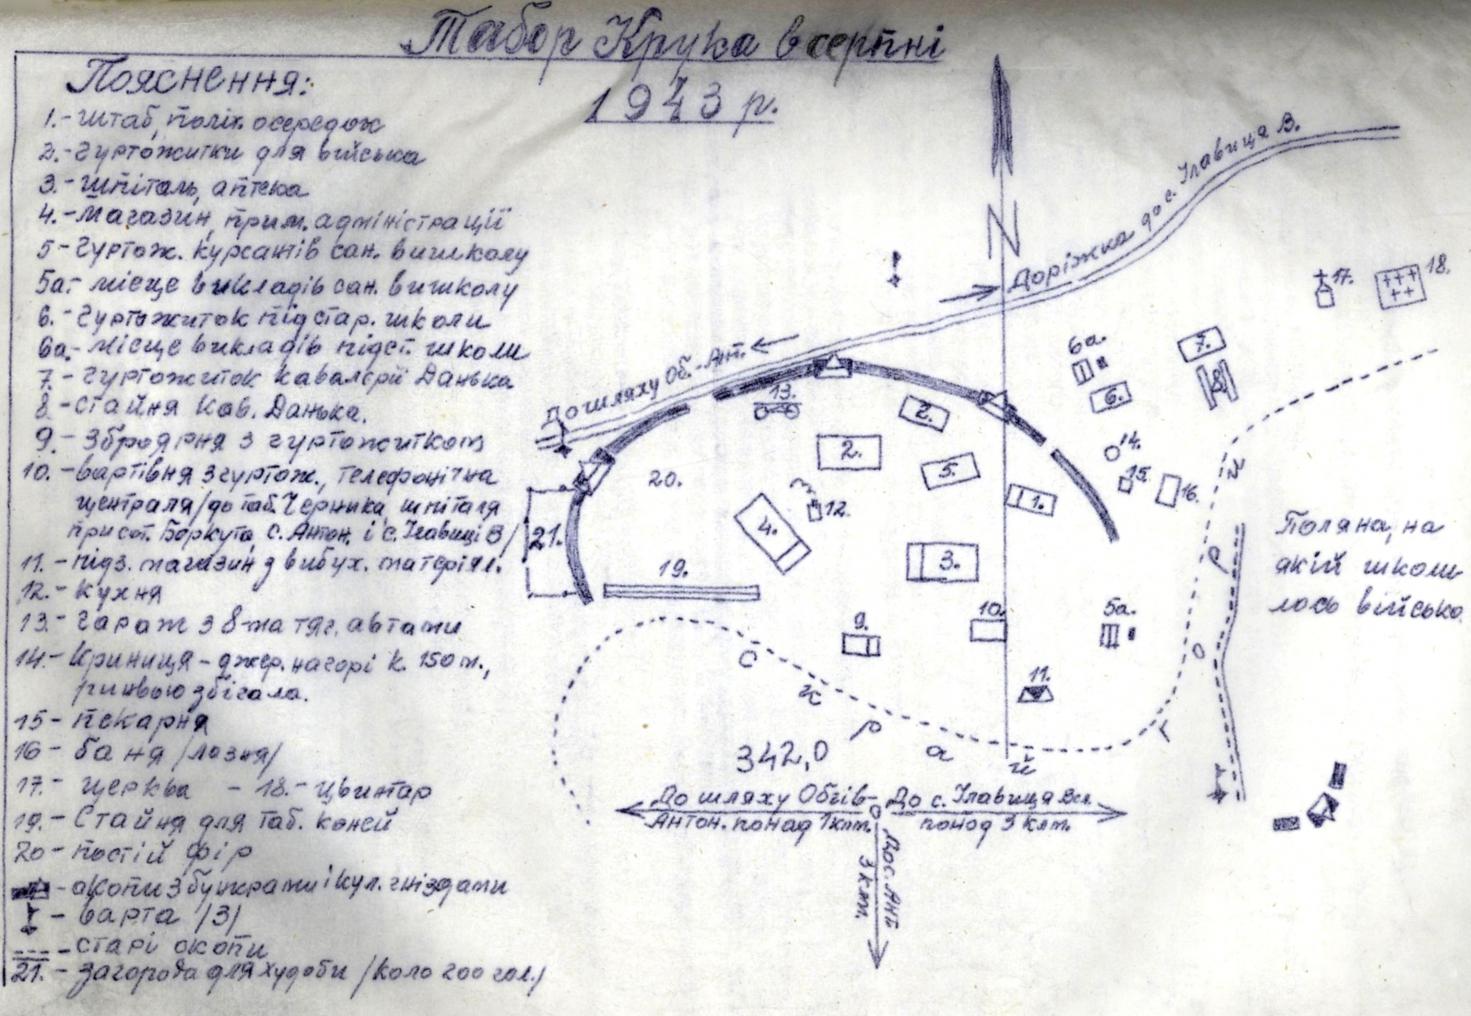 Табор Крука в серпні
1943 р.
Пояснення:
1.- штаб, політ. осередок
2.- гуртожитки для війська
3.- шпіталь, аптека
4.- магазин, прим. адміністрації
5- гуртож. курсантів сан. вишколу
5а- місце викладів сан. вишколу
6.- гуртожиток підстар. школи
6а- місце викладів підст. школи
7.- гуртожиток кавалерії Данька
8.- стайня кав. Данька.
9.- Збройрня з гуртожитком
10.- вартівня з гуртож., телефонічна
централя /до таб. Черника, шпіталя
при сот. Боркута, с. Антон. і с. Ілавиці В/
11.- підз. магазин з вибух. матеріял.
12.- кухня
13.- гараж з 8-ма тяг. автами
14.- Криниця - джер. на горі к. 150 м.,
ринвою збігала.
15- пекарня
16- баня /лазня/
17.- церква - 18.- цвинтар
19.- Стайня для таб. коней
20- постій фір
- окопи з бункрами і кул. гніздами
- варта /3/
- старі окопи
21.- загорода для худоби /коло 200 гол./
N
Доріжка до с. Ілавиця В.
До шляху Об.-Ант.
17.
18.
6а.
7.
6.
8
13.
2.
2.
14.
5.
15.
16.
20.
1.
12.
4.
21.
3.
19.
Поляна, на
якій школи
лось військо.
9.
10.
5а.
11.
С т а р и й
г о р о д
342,0
До шляху Обгів-
Антон. понад 1 клм.
До с. Ілавиця Вел.
понад 3 клм.
До с. Ант.
3 клм.